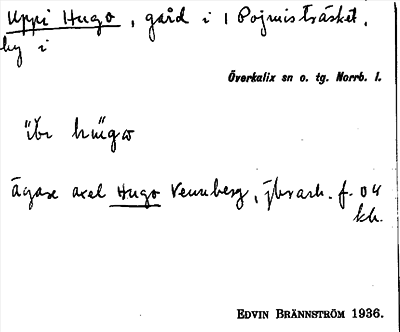 Uppi Hugo, gård i 1 Pojmisträsket,
by i
Överkalix sn o. tg. Norrb. l.
Ägare axel Hugo Vennberg, f. 04
EDVIN BRÄNNSTRÖM 1936.